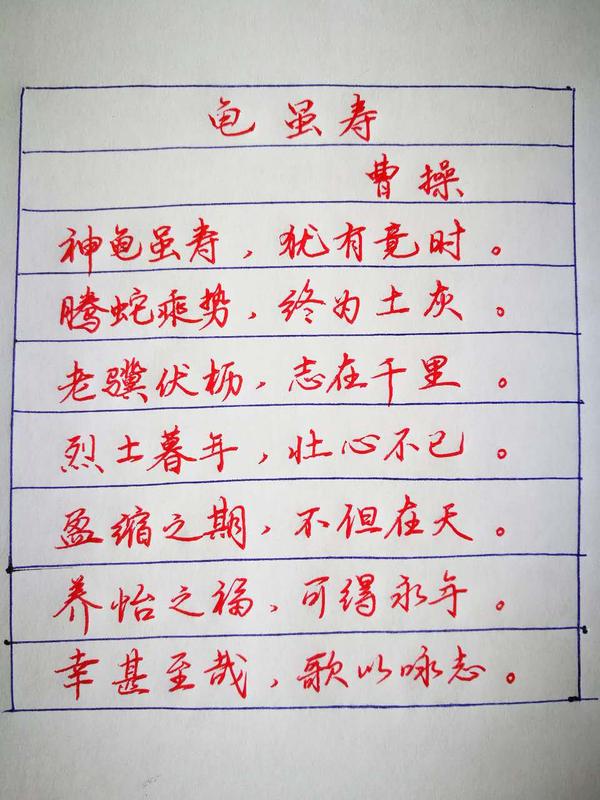 龟虽寿
曹操
神龟虽寿，犹有竟时。
腾蛇乘势，终为土灰。
老骥伏枥，志在千里。
烈士暮年，壮心不已。
盈缩之期，不但在天。
养怡之福，可得永年。
幸甚至哉，歌以咏志。